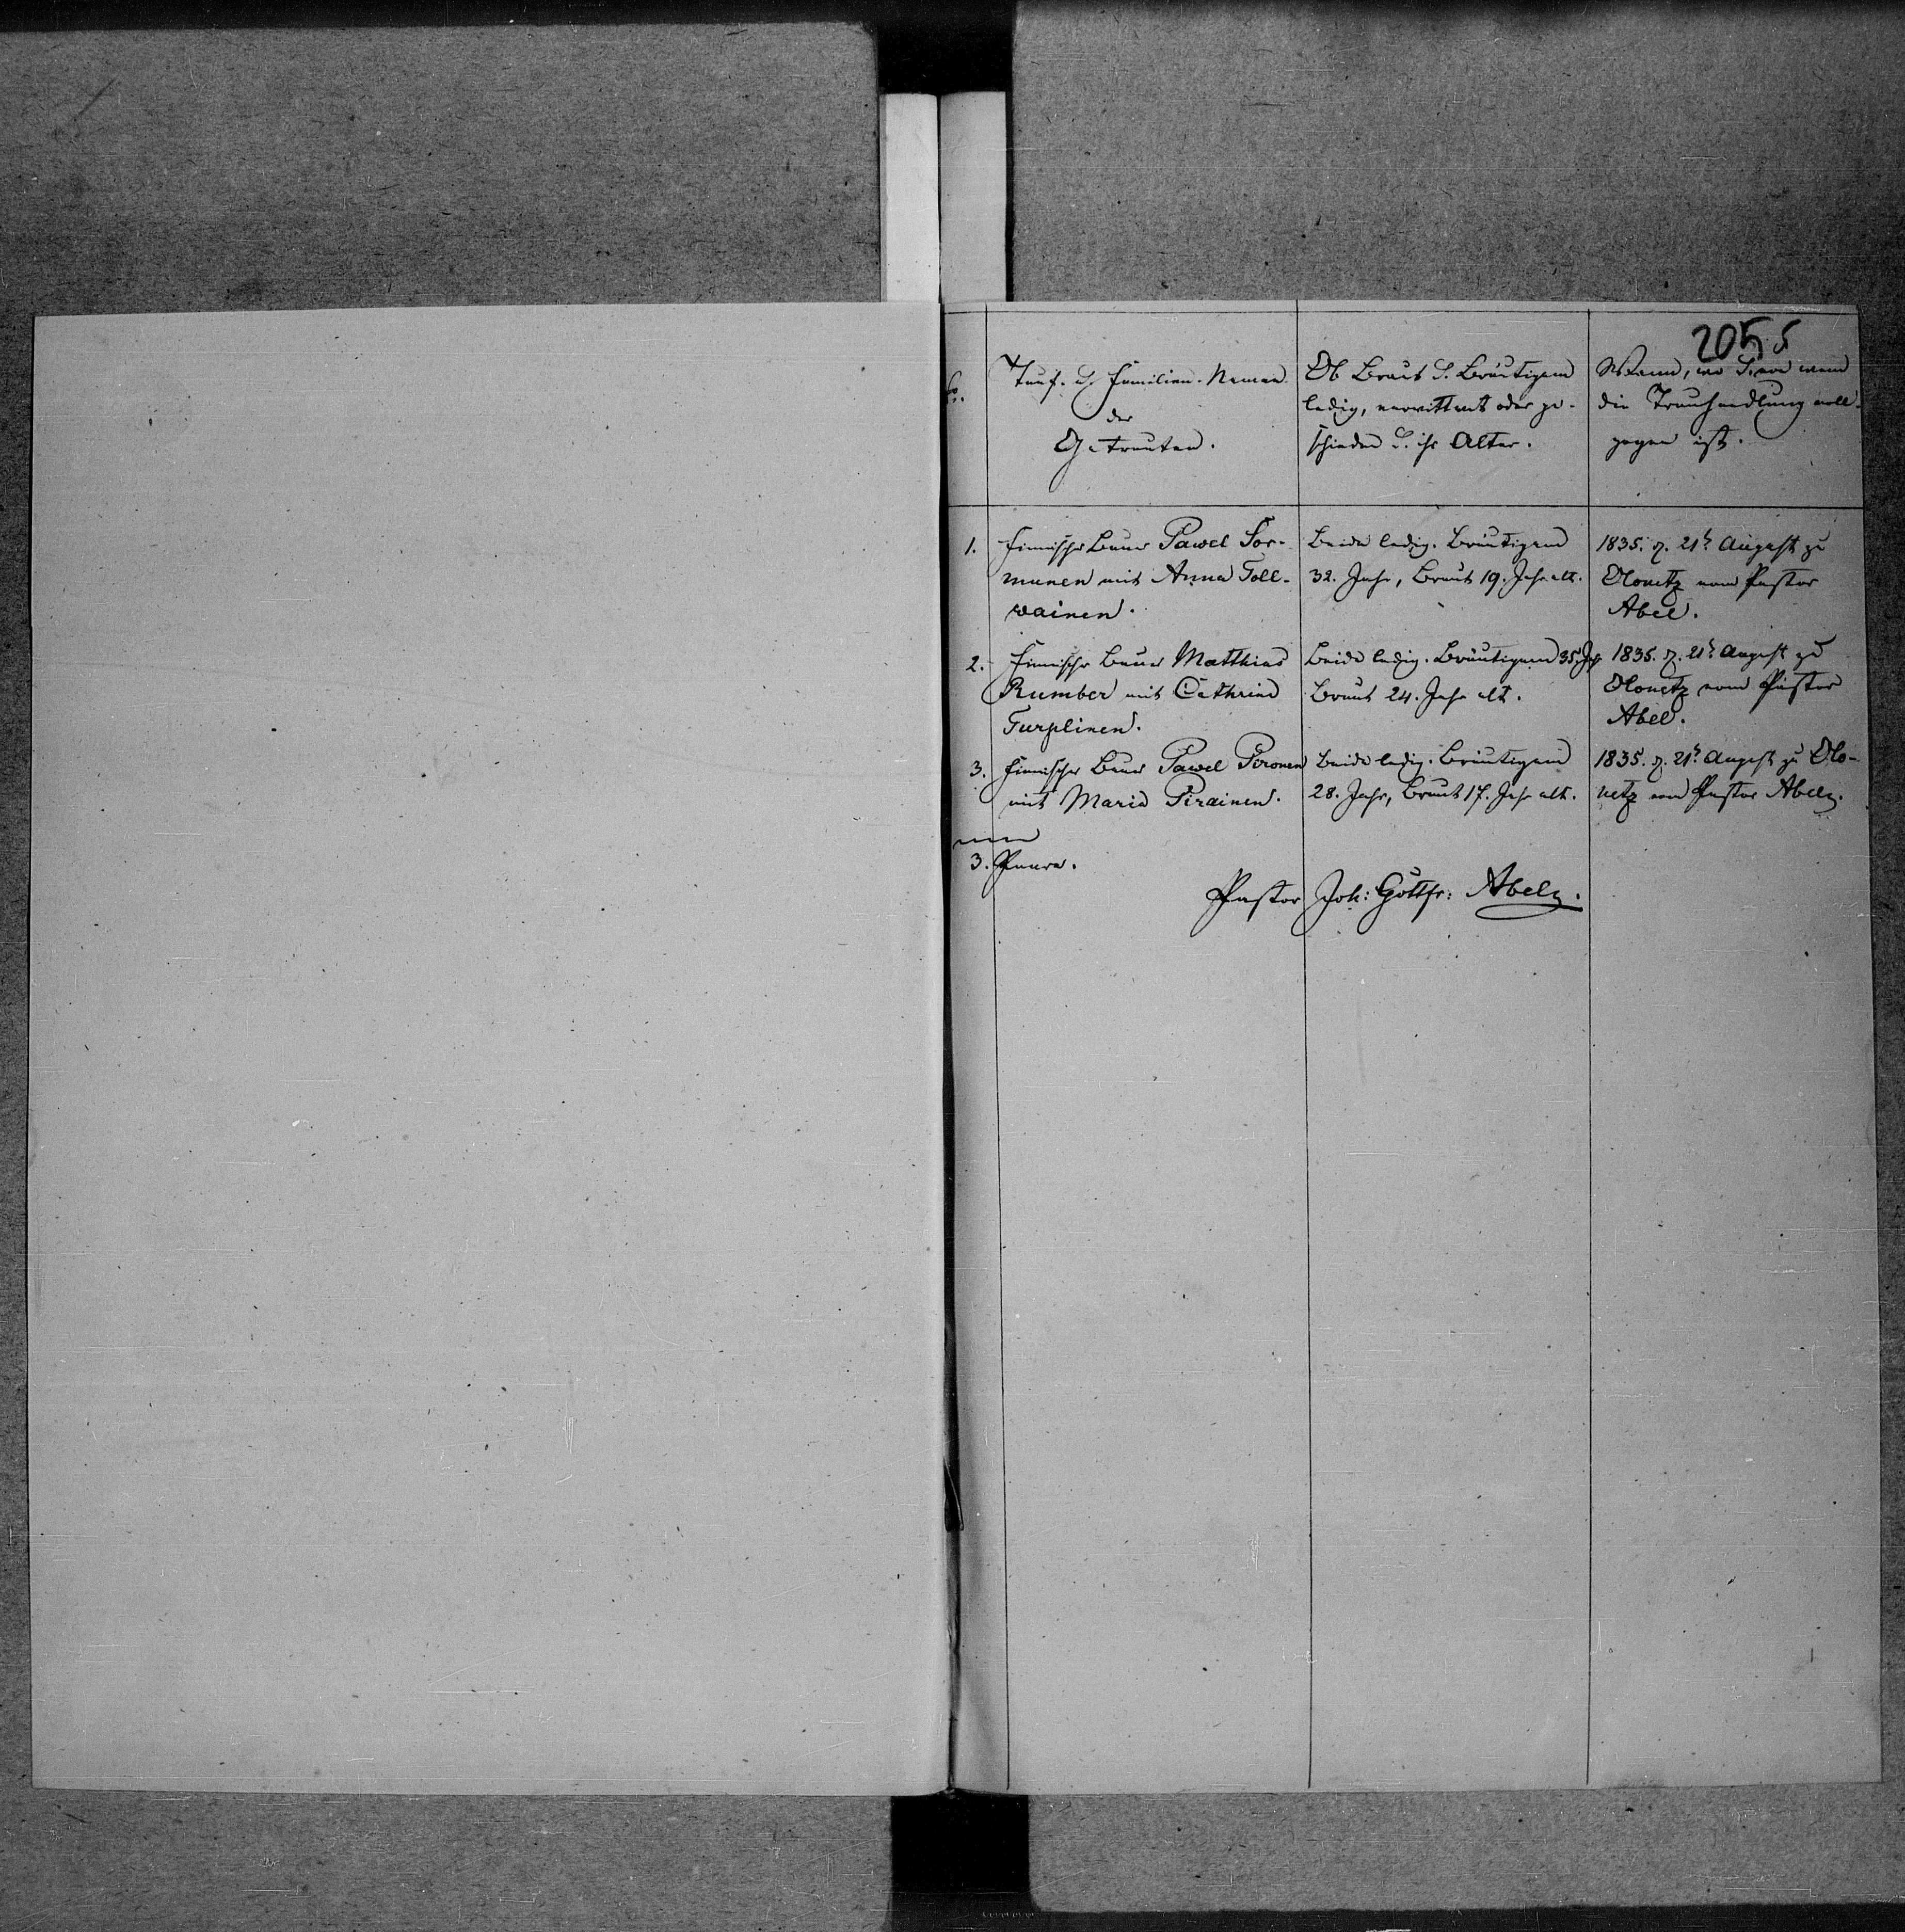 2055
Tauf- u. Familien-Namen
der
Getrauten.
Ob Braut u. Bräutigam
ledig, verwittwet oder ge-
schieden u. ihr Alter.
Wann, wo u. von wem
die Trauhandlung voll-
zogen ist.
1. Finnischer Bauer Pawel Sor-
munen mit Anna Toll-
wainen.
Beide ledig. Bräutigam
32. Jahr, Braut 19. Jahr alt.
1835. d. 21t August zu
Olonetz vom Pastor
Abel.
2. Finnischer Bauer Matthias
Rumber mit Cathrina
Turplinen.
Beide ledig. Bräutigam 35. Jahr
Braut 24. Jahr alt.
1835. d. 21t August zu
Olonetz vom Pastor
Abel.
3. Finnischer Bauer Pawel Pironen
mit Maria Pirainen.
Beide ledig. Bräutigam
28. Jahr, Braut 17. Jahr alt.
1835. d. 21t August zu Olo-
netz vom Pastor Abel.
3. Paare.
Pastor Joh: Gottfr: Abel.